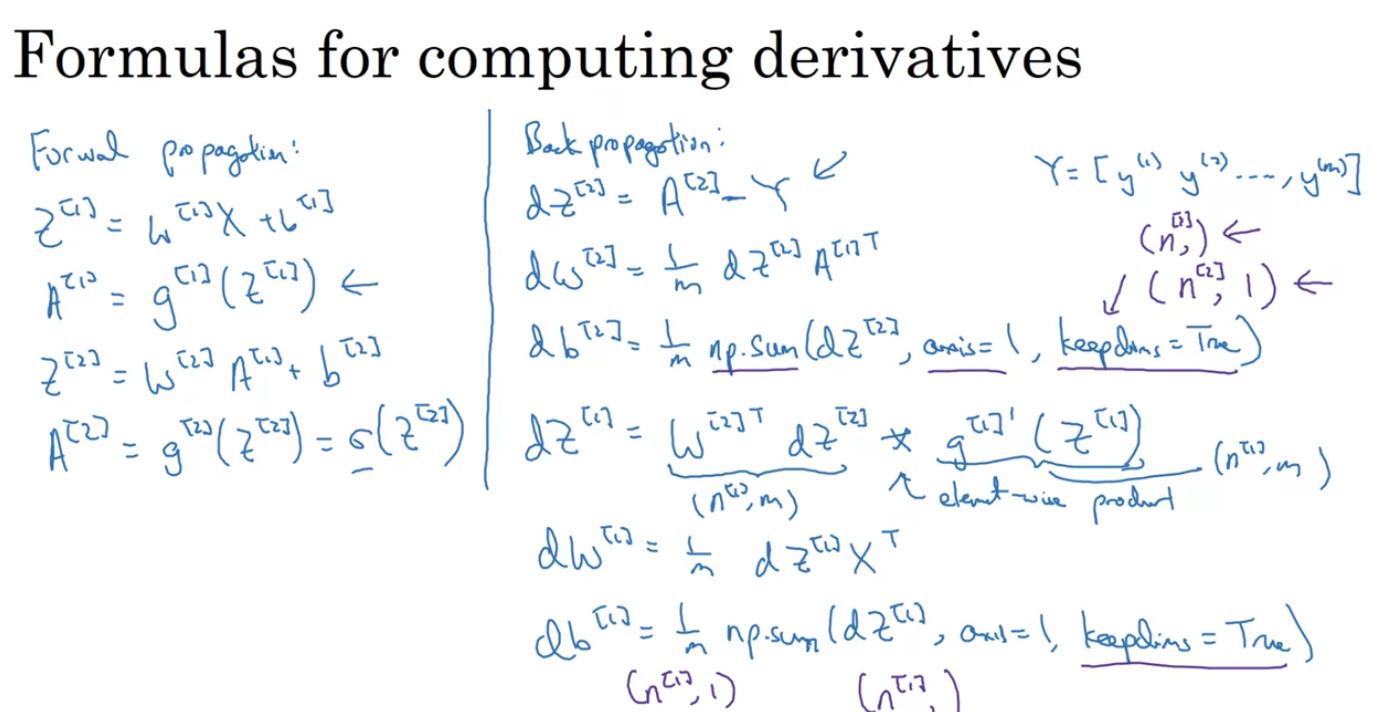 Formulas for computing derivatives
Forwal propagation:
Z^[1] = W^[1]X + b^[1]
A^[1] = g^[1](Z^[1]) ←
Z^[2] = W^[2] A^[1] + b^[2]
A^[2] = g^[2](Z^[2]) = σ(Z^[2])
Back propagation:
dZ^[2] = A^[2] - Y ↙
dW^[2] = 1/m dZ^[2] A^[1]T
db^[2] = 1/m np.sum(dZ^[2], axis=1, keepdims=True)
dZ^[1] = W^[2]T dZ^[2] * g^[1]'(Z^[1])
(n^[1], m) ↖ element-wise product (n^[1], m)
dW^[1] = 1/m dZ^[1] X^T
db^[1] = 1/m np.sum(dZ^[1], axis=1, keepdims=True)
(n^[1], 1) (n^[1], )
Y = [y^(1) y^(2) ...., y^(m)]
(n^[2], ) ←
↙ (n^[2], 1) ←